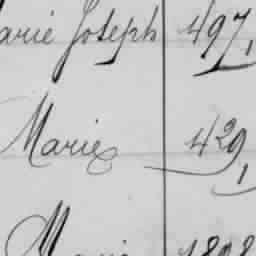 arie Joseph 497,
Marie 429,
Marie 1898